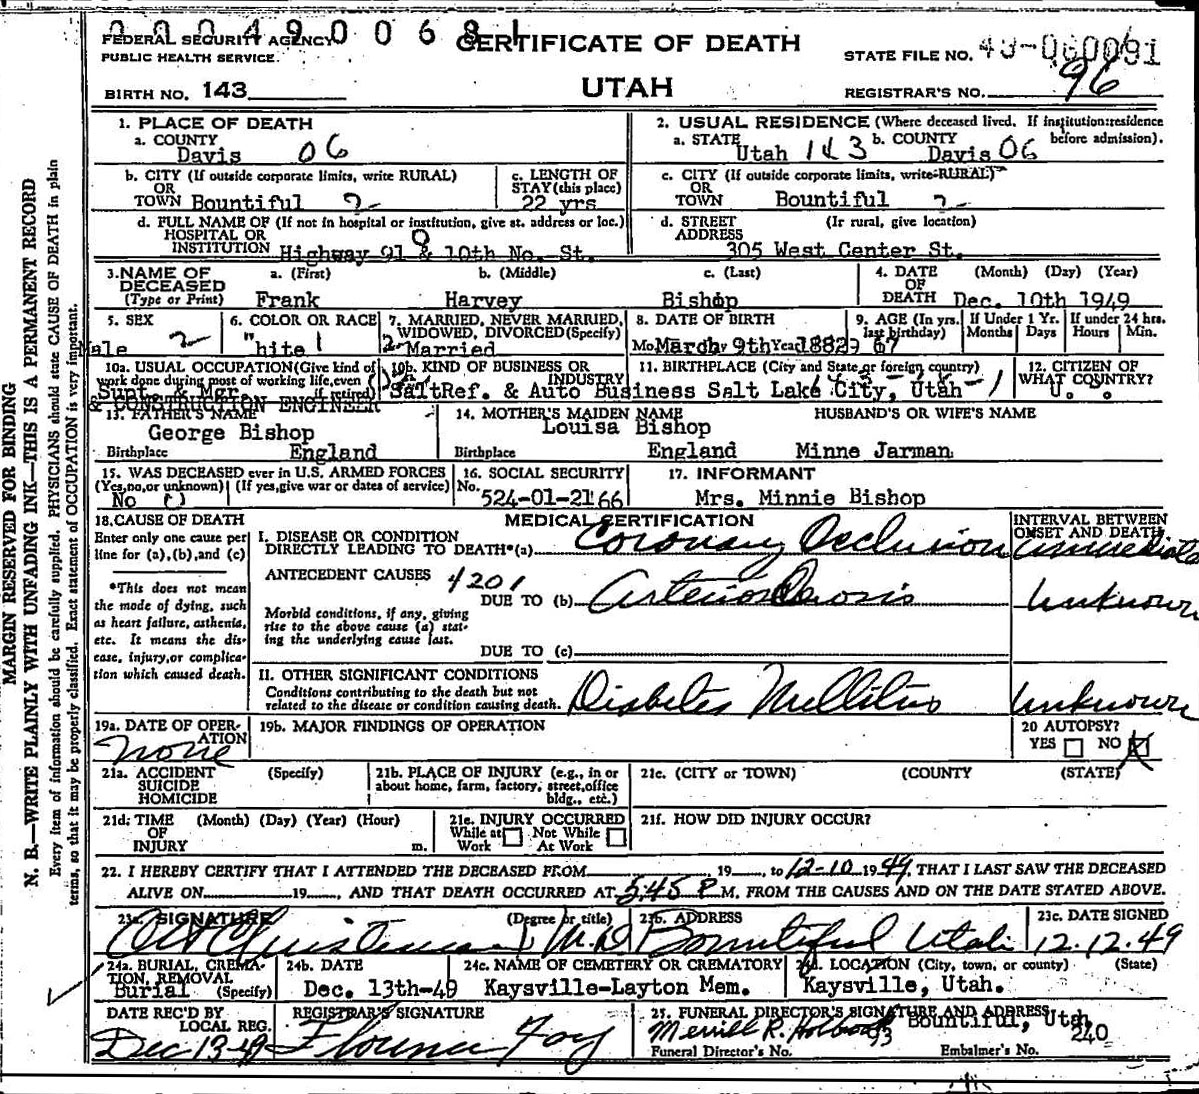 0 0 0 4 9 0 0 6 8 1
FEDERAL SECURITY AGENCY CERTIFICATE OF DEATH
PUBLIC HEALTH SERVICE. STATE FILE NO.
UTAH
BIRTH NO. 143 REGISTRAR'S NO. 96
1. PLACE OF DEATH
a. COUNTY
Davis 06
2. USUAL RESIDENCE (Where deceased lived. If institution: residence before admission).
a. STATE Utah 143 b. COUNTY Davis 06
b. CITY (If outside corporate limits, write RURAL)
OR
TOWN Bountiful 2
c. LENGTH OF
STAY (this place)
22 yrs
c. CITY (If outside corporate limits, write RURAL)
OR
TOWN Bountiful 2
d. FULL NAME OF (If not in hospital or institution, give st. address or loc.)
HOSPITAL OR
INSTITUTION Highway 91 & 10th No. St.
0
d. STREET (If rural, give location)
ADDRESS
305 West Center St.
3. NAME OF
DECEASED
(Type or Print)
a. (First) b. (Middle) c. (Last)
Frank Harvey Bishop
4. DATE (Month) (Day) (Year)
OF
DEATH Dec. 10th 1949
5. SEX
Male 2
6. COLOR OR RACE
"hite 1
7. MARRIED, NEVER MARRIED,
WIDOWED, DIVORCED (Specify)
2 Married
8. DATE OF BIRTH
Mo. March Day 9th Year 1882
9. AGE (In yrs. last birthday) 67
If Under 1 Yr.
Months Days
If under 24 hrs.
Hours Min.
10a. USUAL OCCUPATION (Give kind of
work done during most of working life, even
if retired)
Supt. Mgr.
& CONSTRUCTION ENGINEER
10b. KIND OF BUSINESS OR
INDUSTRY
Salt Ref. & Auto Business
11. BIRTHPLACE (City and State or foreign country)
Salt Lake City, Utah
12. CITIZEN OF
WHAT COUNTRY?
U. .
13. FATHER'S NAME
George Bishop
Birthplace England
14. MOTHER'S MAIDEN NAME
Louisa Bishop
Birthplace England
HUSBAND'S OR WIFE'S NAME
Minne Jarman
15. WAS DECEASED ever in U.S. ARMED FORCES
(Yes, no, or unknown) (If yes, give war or dates of service)
No 0
16. SOCIAL SECURITY
No. 524-01-2166
17. INFORMANT
Mrs. Minnie Bishop
18. CAUSE OF DEATH
Enter only one cause per
line for (a), (b), and (c)
*This does not mean
the mode of dying, such
as heart failure, asthenia,
etc. It means the dis-
ease, injury, or complica-
tion which caused death.
MEDICAL CERTIFICATION
INTERVAL BETWEEN
ONSET AND DEATH
I. DISEASE OR CONDITION
DIRECTLY LEADING TO DEATH*(a) Coronary Occlusion immediate
ANTECEDENT CAUSES 4201
DUE TO (b) Arteriosclerosis Unknown
Morbid conditions, if any, giving
rise to the above cause (a) stat-
ing the underlying cause last.
DUE TO (c)
II. OTHER SIGNIFICANT CONDITIONS
Conditions contributing to the death but not
related to the disease or condition causing death.
Diabetes Mellitus Unknown
19a. DATE OF OPER-
ATION
none
19b. MAJOR FINDINGS OF OPERATION
20 AUTOPSY?
YES NO X
21a. ACCIDENT (Specify)
SUICIDE
HOMICIDE
21b. PLACE OF INJURY (e.g., in or
about home, farm, factory, street, office
bldg., etc.)
21c. (CITY or TOWN) (COUNTY) (STATE)
21d. TIME (Month) (Day) (Year) (Hour)
OF
INJURY m.
21e. INJURY OCCURRED
While at Work Not While At Work
21f. HOW DID INJURY OCCUR?
22. I HEREBY CERTIFY THAT I ATTENDED THE DECEASED FROM 19 , to 12-10 1949, THAT I LAST SAW THE DECEASED
ALIVE ON 19 , AND THAT DEATH OCCURRED AT 5:45 P M. FROM THE CAUSES AND ON THE DATE STATED ABOVE.
23a. SIGNATURE (Degree or title)
Christensen M.D.
23b. ADDRESS
Bountiful Utah
23c. DATE SIGNED
12.12.49
24a. BURIAL, CREMA-
TION, REMOVAL
Burial (Specify)
24b. DATE
Dec. 13th-49
24c. NAME OF CEMETERY OR CREMATORY
Kaysville-Layton Mem.
24d. LOCATION (City, town, or county) (State)
Kaysville, Utah.
DATE REC'D BY
LOCAL REG.
Dec 13-49
REGISTRAR'S SIGNATURE
Florence Foy
25. FUNERAL DIRECTOR'S SIGNATURE AND ADDRESS
Merrill R. Holbrook Bountiful, Utah
93 240
Funeral Director's No. Embalmer's No.
MARGIN RESERVED FOR BINDING
N. B.—WRITE PLAINLY WITH UNFADING INK—THIS IS A PERMANENT RECORD
Every item of information should be carefully supplied. PHYSICIANS should state CAUSE OF DEATH in plain
terms, so that it may be properly classified. Exact statement of OCCUPATION is very important.